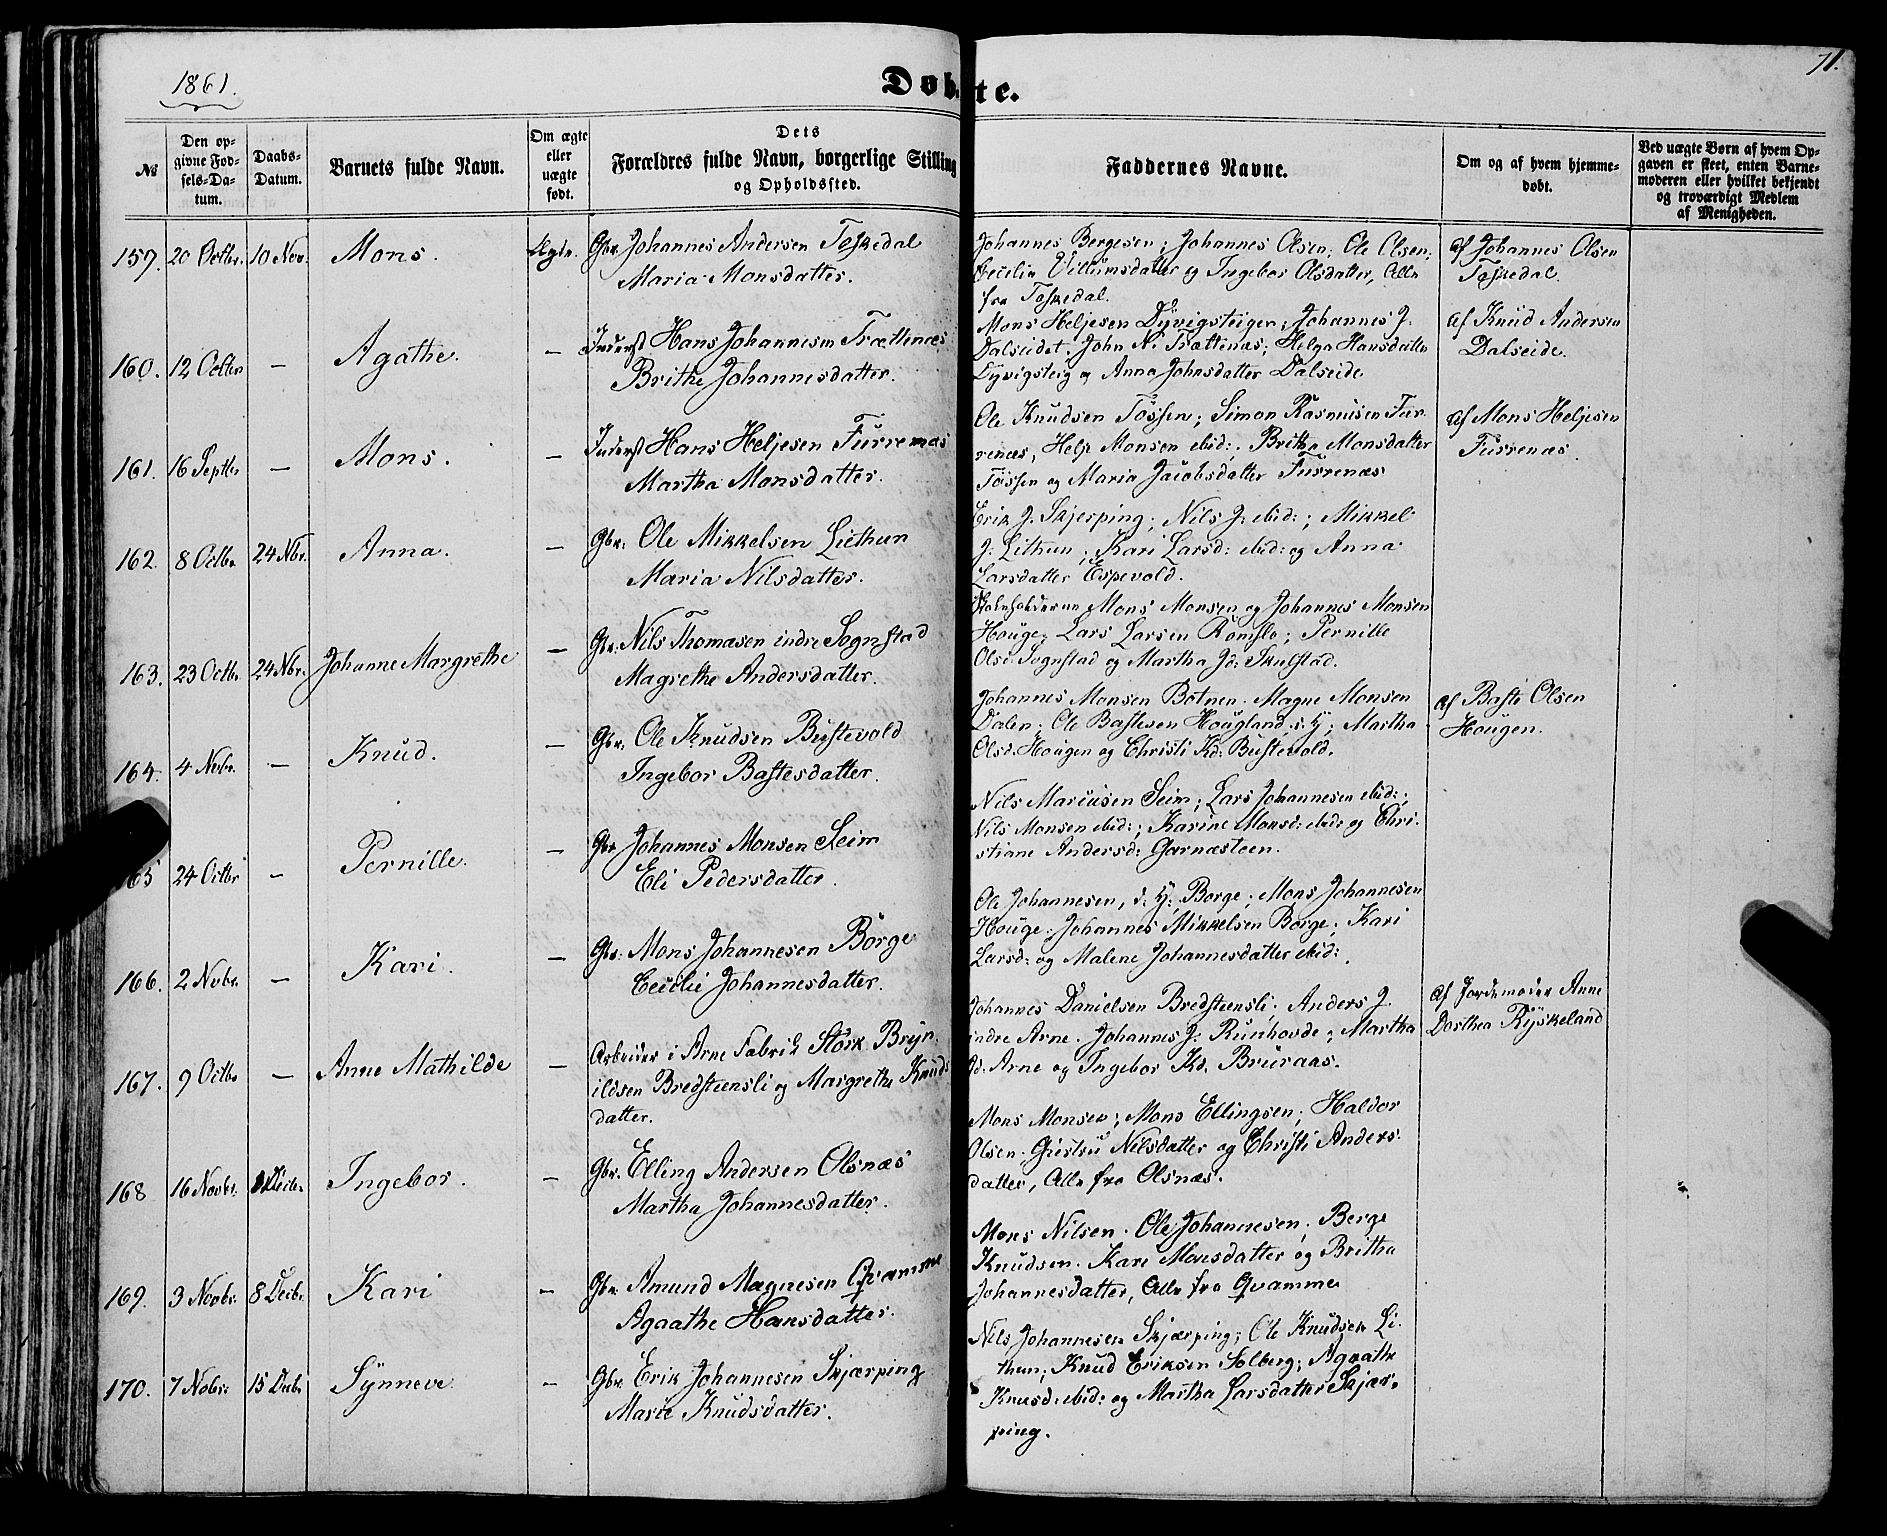 1861.
Døbte.
71.
№
Den op-
givne Fød-
sels-Da-
tum.
Daabs-
Datum.
Barnets fulde Navn.
Om ægte
eller
uægte
født.
Dets
Forældres fulde Navn, borgerlige Stilling
og Opholdssted.
Faddernes Navne.
Om og af hvem hjemme-
døbt.
Ved uægte Børn af hvem Op-
gaven er skeet, enten Barne-
moderen eller hvilket bekjendt
og troværdigt Medlem
af Menigheden.
157. 20 Octbr. 10 Nov. Mons. Ægte. Gbr. Johannes Andersen Toskedal
Maria Monsdatter.
Johannes Bergesen; Johannes Olsen; Ole Olsen;
Cecilia Villumsdatter og Ingebor Olsdatter, Alle
fra Toskedal.
af Johannes Olsen
Toskedal.
160. 12 Octbr — Agathe. — Inderst Hans Johannesen Trættenæs
Brithe Johannesdatter.
Mons Heljesen Dyvigsteigen; Johannes J.
Dalseidet. John N. Trættenæs; Helga Hansdatter
Dyvigsteig og Anna Johnsdatter Dalseide
af Knud Andersen
Dalseide.
161. 16 Septbr — Mons. — Inderst Hans Heljesen Furrenæs
Martha Monsdatter.
Ole Knudsen Tøssen; Simon Rasmusen Fur-
renæs, Helje Monsen ibid:. Britha Monsdatter
Tøssen og Maria Jacobsdatter Furrenæs
af Mons Heljesen
Furrenæs.
162. 8 Octbr 24 Nbr. Anna. — Gbr: Ole Mikkelsen Liethun
Maria Nilsdatter.
Erik J. Skjerping; Nils J. ibid:; Mikkel
J. Lithun; Kari Larsd: ibid: og Anna
Larsdatter Espevold.
163. 23 Octbr 24 Nbr. Johanne Margrethe — Gbr: Nils Thomasen indre Sognstad
Magrethe Andersdatter.
Mons Monsen og Johannes Monsen
Houge; Lars Larsen Romslo; Pernille
Olsd: Sognstad og Martha Jd: Skulstad.
164. 4 Novbr. — Knud. — Gbr. Ole Knudsen Bustevold
Ingebor Bastesdatter.
Johannes Monsen Botnen. Magne Monsen
Dalen; Ole Bastesen Hougland, d: y; Martha
Olsd: Hougen og Christi Kd: Bustevold.
af Baste Olsen
Hougen.
165 24 Octbr — Pernille. — Gbr Johannes Monsen Seim
Eli Pedersdatter.
Nils Marcusen Seim; Lars Johannesen ibid:;
Nils Monsen ibid:; Karine Monsd: ibid: og Chri-
stiane Andersd: Garnæsteen.
166. 2 Novbr. — Kari. — Gbr: Mons Johannesen Borge
Cecilie Johannesdatter.
Ole Johannesen, d: y: Borge; Mons Johannesen
Houge. Johannes Mikkelsen Borge; Kari
Larsd: og Malene Johannesdatter ibid:.
167. 9 Octbr — Anne Mathilde — Arbeider i Arne Fabrik Størk Bryn-
ildsen Bredstensli og Margrethe Knuds
datter.
Johannes Danielsen Bredstensli; Anders J.
indre Arne. Johannes J. Runhovde; Martha
Jd: Arne og Ingebor Kd. Bruraas.
af Jordemoder Anne
Dorthea Ryskeland
168 16 Novbr. Decbr. Ingebor. — Gbr. Elling Andersen Olsnæs
Martha Johannesdatter.
Mons Monsen; Mons Ellingsen; Haldor
Olsen. Giertru Nilsdatter og Christi Anders-
datter, Alle fra Olsnæs.
169. 3 Novbr. 8 Decbr. Kari — Gbr. Amund Magnesen Qvamme
Agaathe Hansdatter.
Mons Nilsen. Ole Johannesen; Berge
Knudsen. Kari Monsdatter og Britha
Johannesdatter, Alle fra Qvamme
170. 7 Nobr: 15 Decbr Synneve. — Gbr. Erik Johannesen Skjærping
Marie Knudsdatter.
Nils Johannesen Skjærping; Ole Knudsen Li-
thun; Knud Eriksen Solberg; Agaathe
Knusd: ibid: og Martha Larsdatter Skjær-
ping.